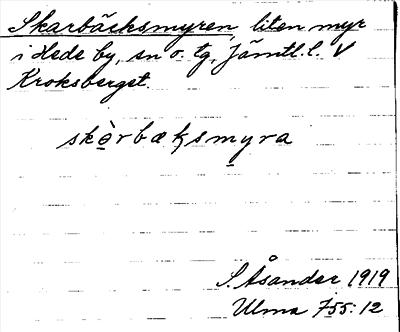 Skarbäcksmyren, liten myr
i Hede by, sn o. tg, Jämtl. l. V
Kroksberget.
skòrbæksmyra
S. Åsander 1919
Ulma 755:12